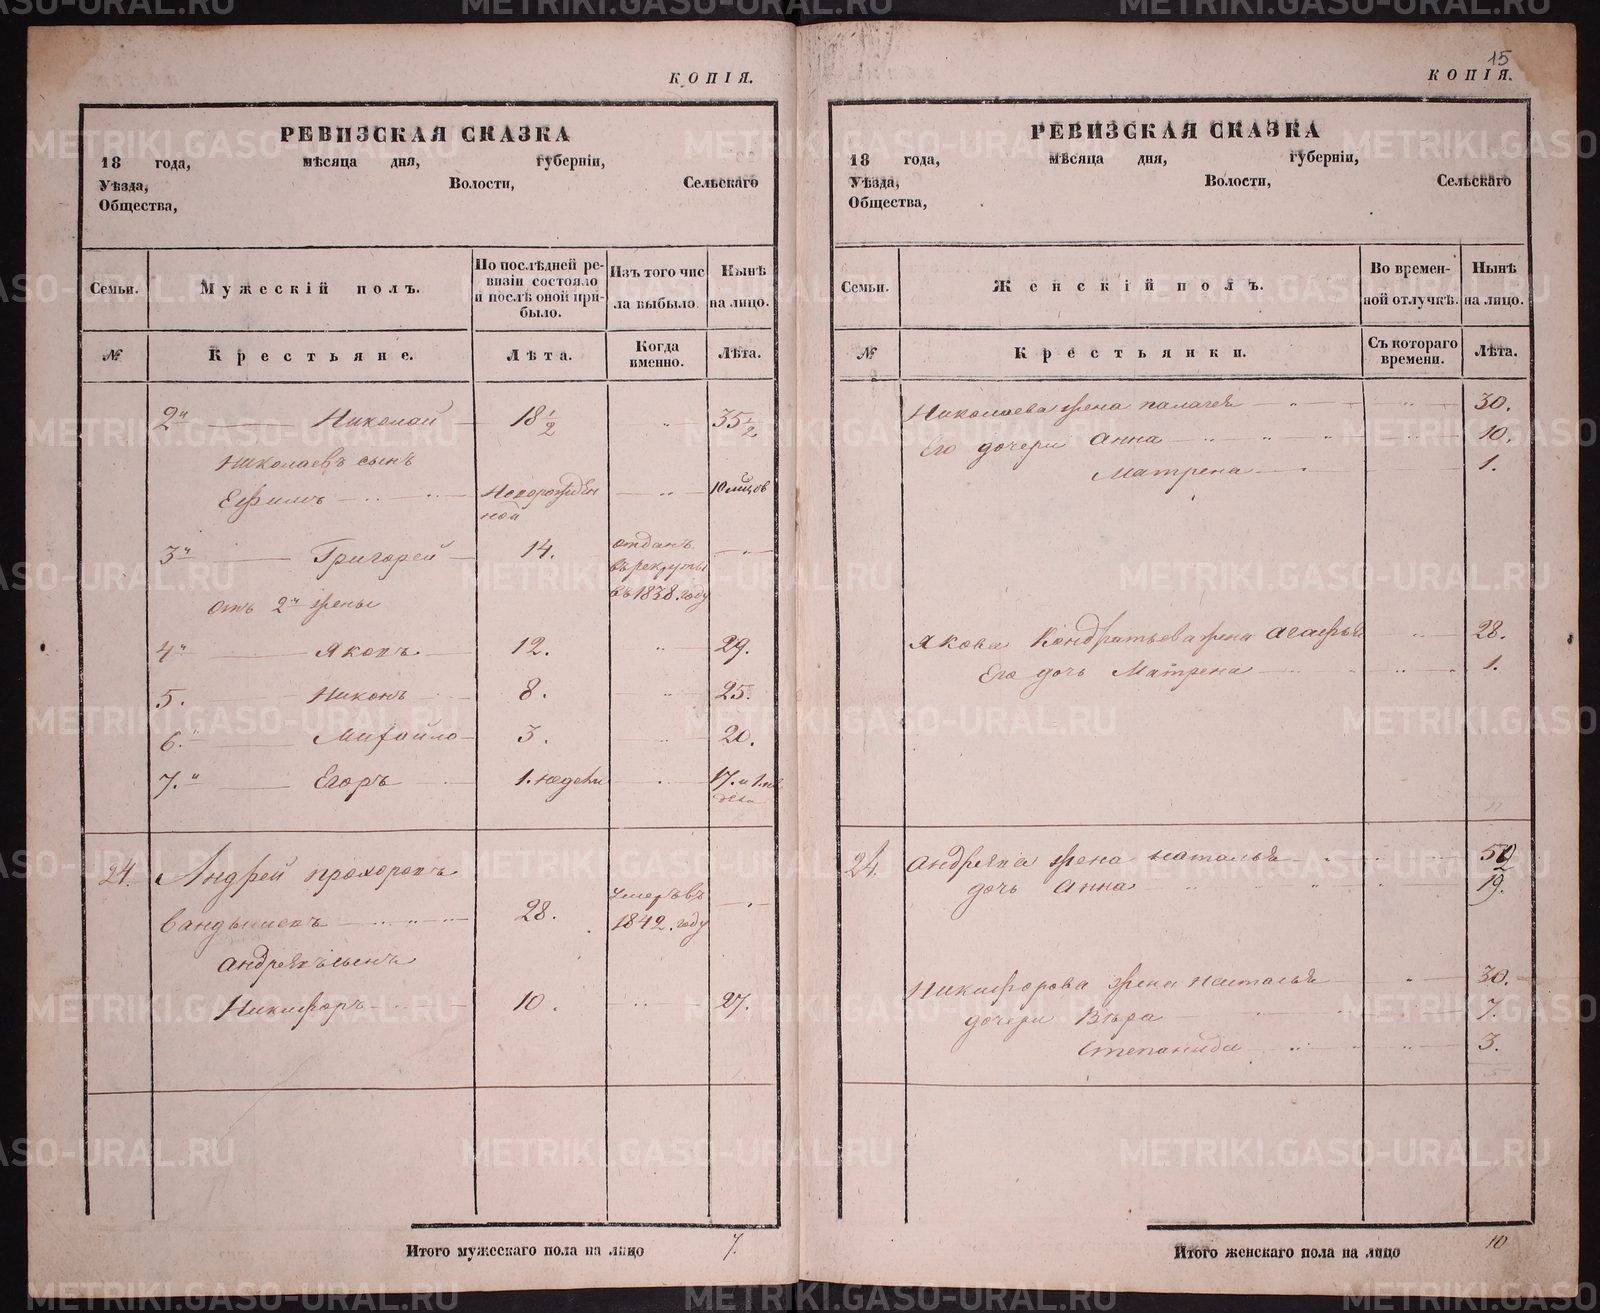 КОПІЯ.
РЕВИЗСКАЯ СКАЗКА
18 года, мѣсяца дня, губерніи,
Уѣзда, Волости, Сельскаго
Общества,
Семьи. Мужескій полъ. По послѣдней ревизіи состояло и послѣ оной прибыло. Изъ того числа выбыло. Нынѣ на лицо.
№ Крестьяне. Лѣта. Когда именно. Лѣта.
2й Николай 18 1/2 35 1/2
Николаевъ сынъ
Ефимъ Новорожденной 10 мѣсяцов
3й Григорей 14. отданъ въ рекруты въ 1838. году
отъ 2й жены
4й Яковъ 12. 29.
5. Никонъ 8. 25.
6. Михайло 3. 20.
7. Егоръ 1. недели 17. и 1. недели
24. Андрей Прохоровъ
Вандышевъ 28. умеръ въ 1842. году
Андреявъ сынъ
Никифоръ 10. 27.
Итого мужескаго пола на лицо 7.
15
КОПІЯ.
РЕВИЗСКАЯ СКАЗКА
18 года, мѣсяца дня, губерніи,
Уѣзда, Волости, Сельскаго
Общества,
Семьи. Женскій полъ. Во временной отлучкѣ. Нынѣ на лицо.
№ Крестьянки. Съ котораго времени. Лѣта.
Николаева жена Палагея 30.
Его дочери Анна 10.
Матрена 1.
Якова Кондратьева жена Агафья 28.
Его дочь Матрена 1.
24. Андреява жена Наталья 50
дочь Анна 19.
Никифорова жена Наталья 30.
дочери Вѣра 7.
Степанида 3.
Итого женскаго пола на лицо 10
METRIKI.GASO-URAL.RU